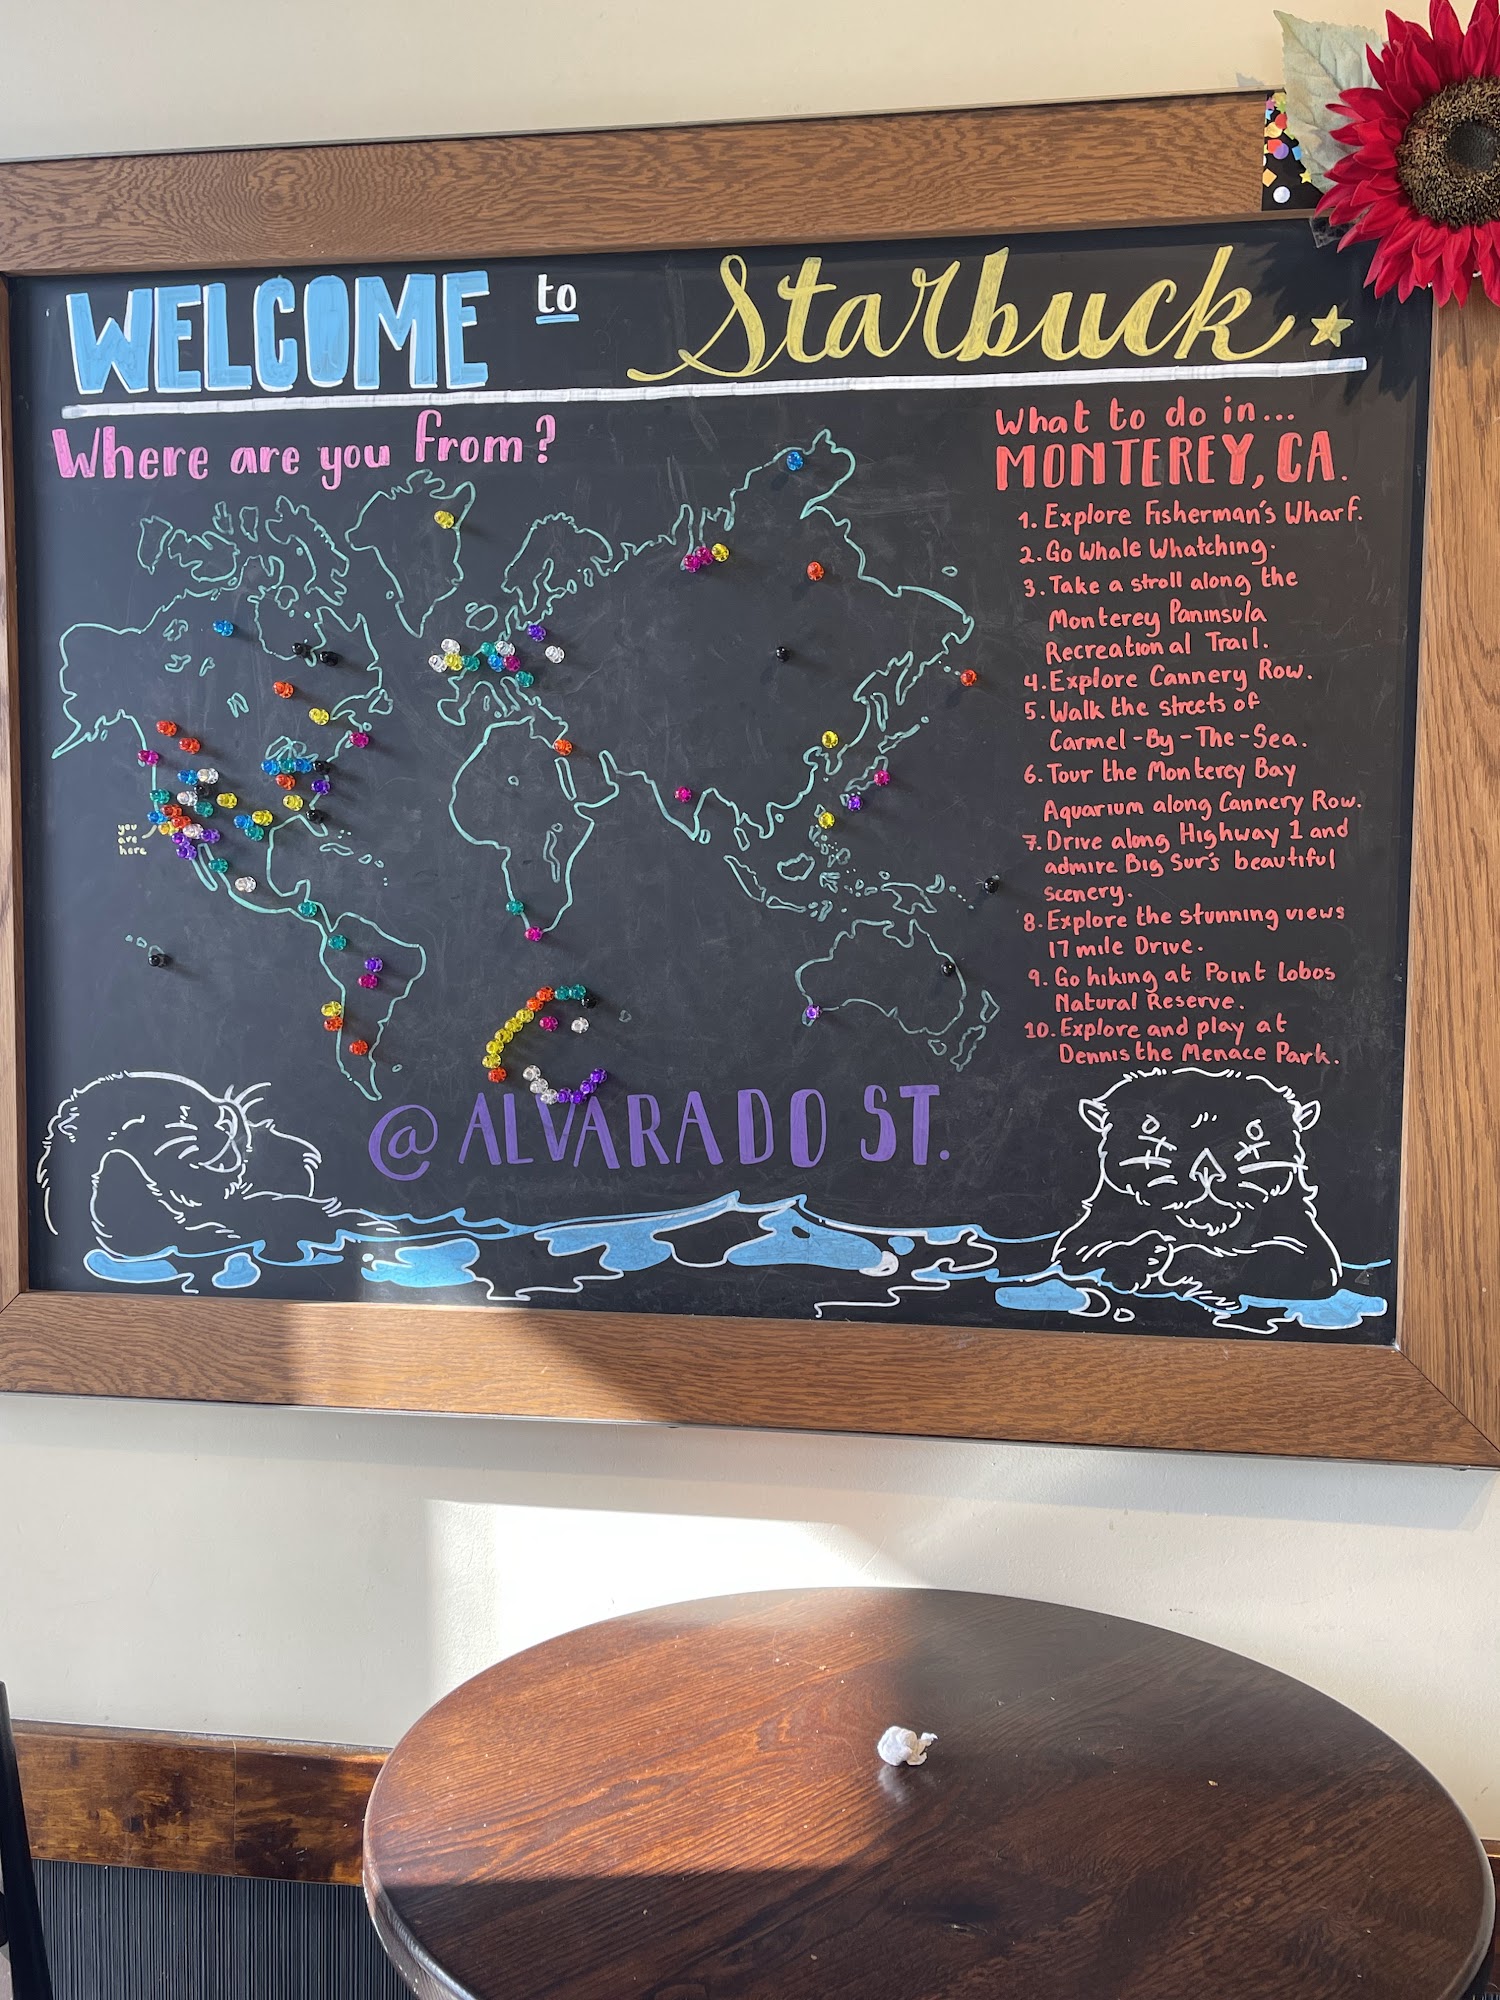 WELCOME to Starbuck
Where are you from?
you
are
here
@ ALVARADO ST.
What to do in...
MONTEREY, CA.
1. Explore Fisherman's Wharf.
2. Go Whale Whatching.
3. Take a stroll along the
Monterey Paninsula
Recreational Trail.
4. Explore Cannery Row.
5. Walk the streets of
Carmel-By-The-Sea.
6. Tour the Monterey Bay
Aquarium along Cannery Row.
7. Drive along Highway 1 and
admire Big Sur's beautiful
scenery.
8. Explore the stunning views
17 mile Drive.
9. Go hiking at Point Lobos
Natural Reserve.
10. Explore and play at
Dennis the Menace Park.